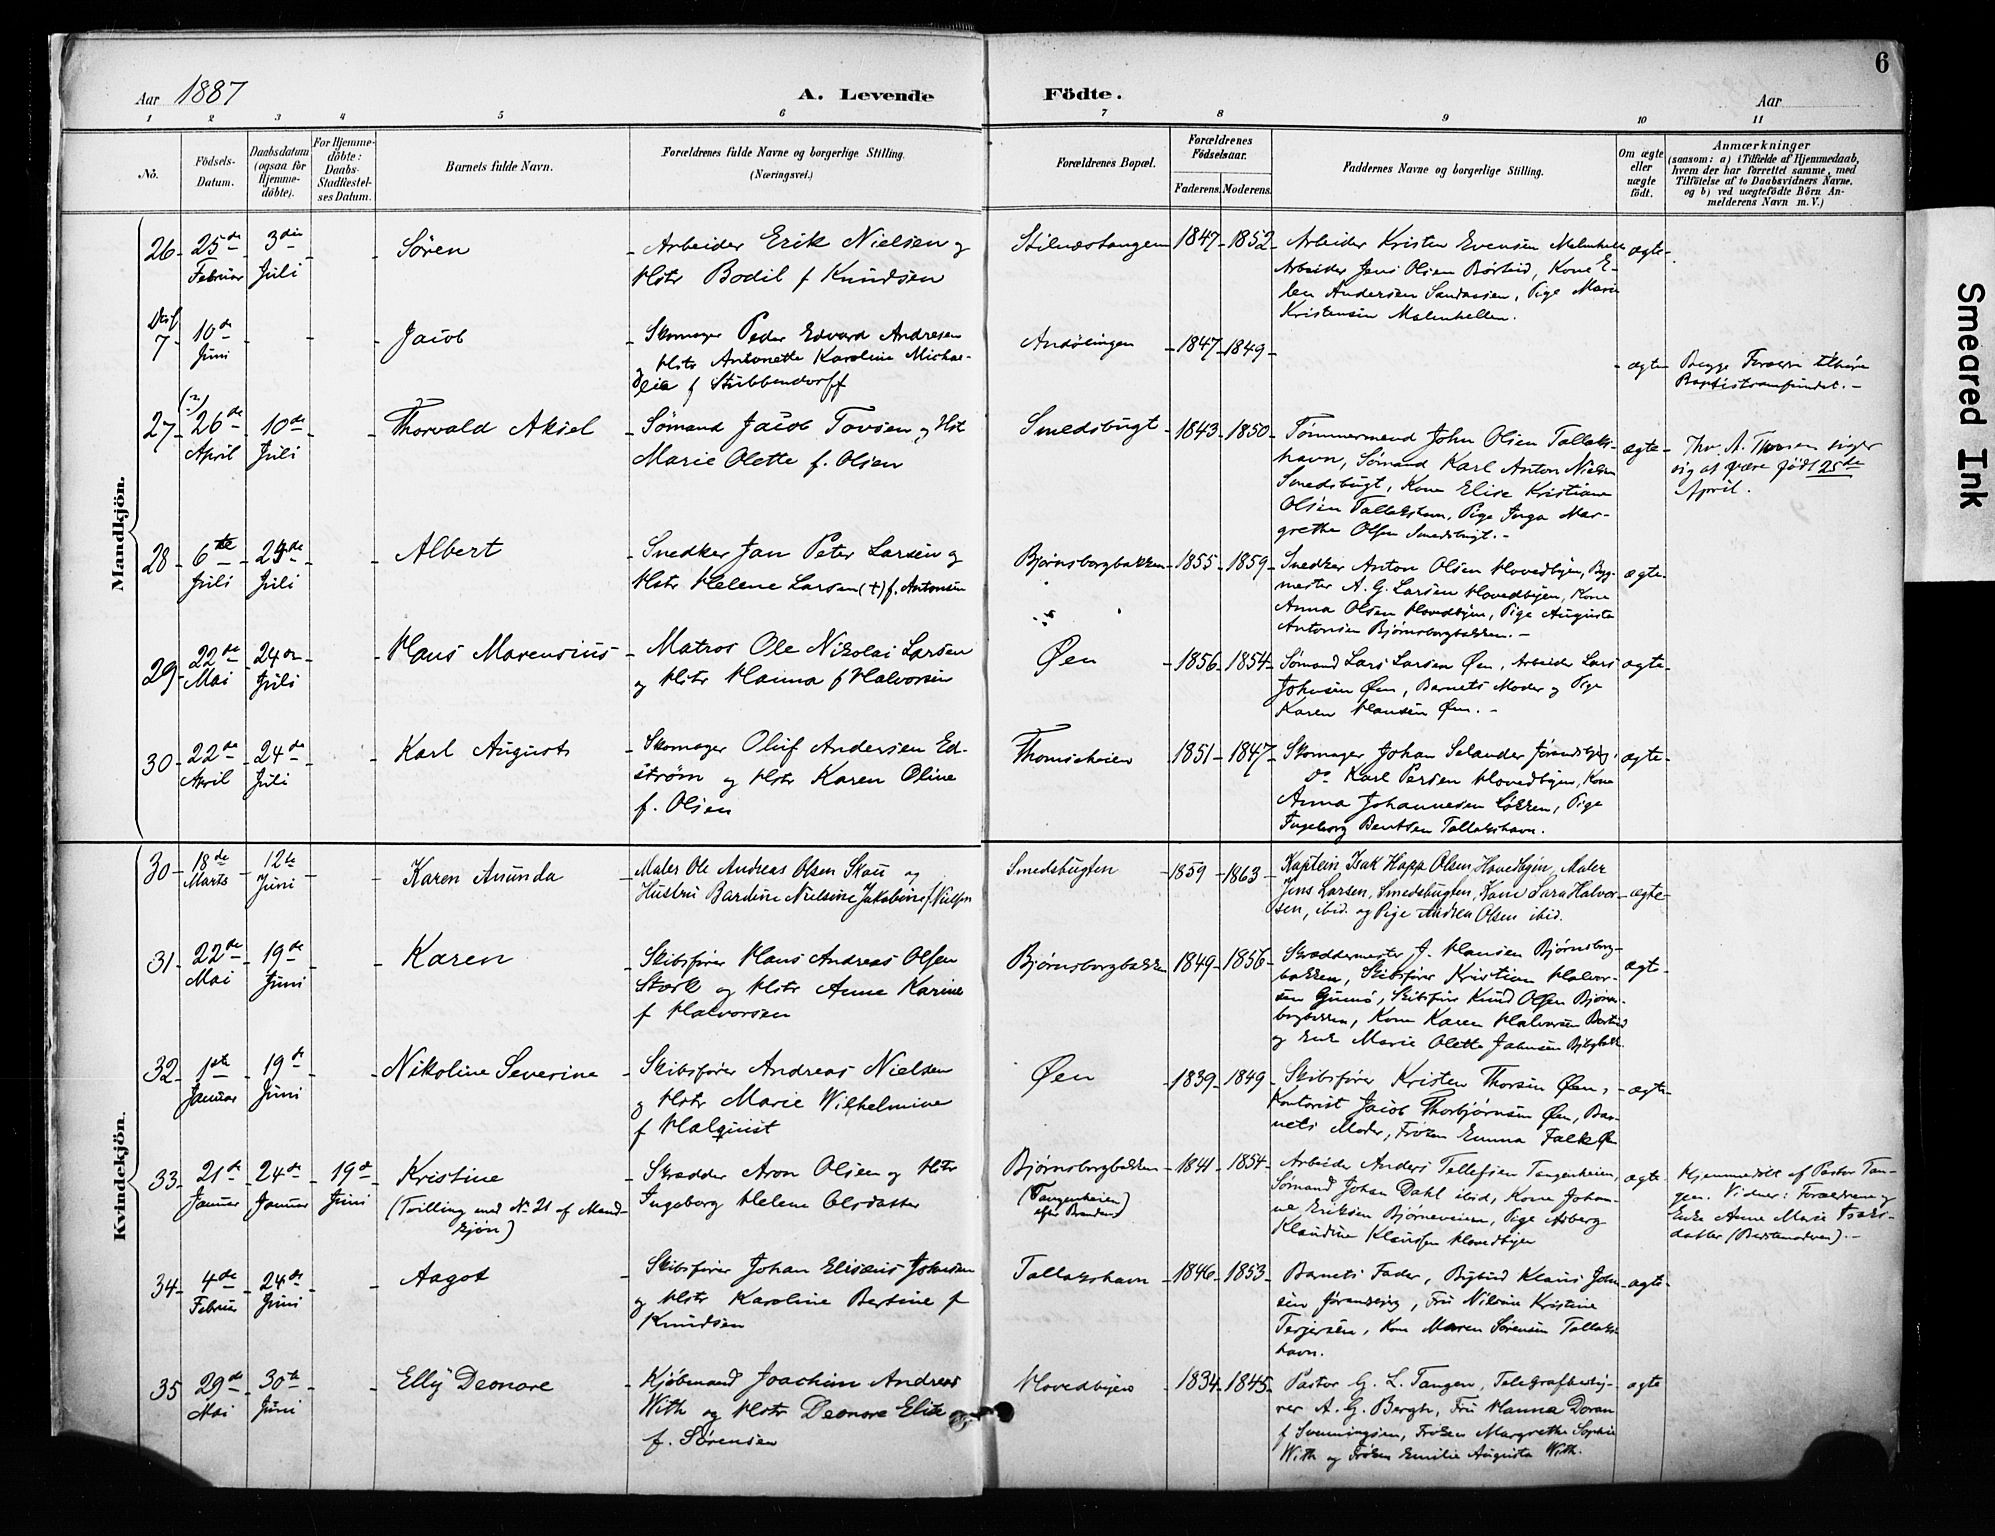 6
Aar 1887
A. Levende
Födte.
Aar
1 2 3 4 5 6 7 8 9 10 11
No.
Födsels-
Datum.
Daabsdatum
(ogsaa för
Hjemme-
döbte).
For Hjemme-
döbte:
Daabs-
Stadfæstel-
ses Datum.
Barnets fulde Navn.
Forældrenes fulde Navne og borgerlige Stilling.
(Næringsvei.)
Forældrenes Bopæl.
Forældrenes
Födselsaar.
Faderens. Moderens.
Faddernes Navne og borgerlige Stilling.
Om ægte
eller
uægte
födt.
Anmærkninger
(saasom: a) i Tilfælde af Hjemmedaab,
hvem der har forrettet samme, med
Tilföielse af to Daabsvidners Navne,
og b) ved uægtefödte Börn An-
melderens Navn m. V.)
Mandkjön.
26 25de Februar 3die Juli
Søren
Arbeider Erik Nielsen og
Hstr Bodil f Knudsen
Stilnæstangen 1847 1852
Arbeider Kristen Evensen Malmhella
Arbeider Jens Olsen Børstid, Kone E-
len Andersen Sandaasen, Pige Marie
Kristensen Malmhellen.
ægte
Diss
7 10de Juni
Jacob
Skomager Peder Edvard Andresen
og Hstr Antonette Karoline Michae-
leia f Stubbendorff
Andölingen 1847 1849
ægte
Begge Forældre tilhøre
Baptistsamfundet.
27 26de April 10de Juli
Thorvald Aksel
Sømand Jacob Tovsen og Hst
Marie Olette f. Olsen
Smedsbugt 1843 1850
Tømmermand John Olsen Tallaks-
havn, Sømand Karl Anton Nielsen
Smedsbugt, Kone Elise Kristiane
Olsen Tallakshavn, Pige Inga Mar-
grethe Olsen Smedsbugt.
ægte
Thv. A. Thorsen siger
sig at være født 25de
April.
28 6te Juli 24de Juli
Albert
Snedker Jan Peter Larsen og
Hstr Helene Larsen (+) f. Antonsen
Bjørnsborgbakken 1855 1859
Snedker Anton Olsen Hovedbyen, Byg-
mester A. G. Larsen Hovedbyen, Kone
Anna Olsen Hovedbyen, Pige Augusta
Antonsen Bjørnsborgbakken.
ægte
29 22de Mai 24de Juli
Hans Marensius
Matros Ole Nikolai Larsen
og Hstr Hanna f Halvorsen
Øen 1856 1854
Sømand Lars Larsen Øen, Arbeider Lars
Johnsen Øen, Barnets Moder og Pige
Karen Hansen Øen.
ægte
30 22de April 24de Juli
Karl August
Skomager Oluf Andersen Ed-
strøm og Hstr Karen Oline
f. Olsen
Thomesheien 1851 1847
Skomager Johan Selander Jørandsbjerg,
Do Karl Persen Hovedbyen, Kone
Anna Johannesen Løkken, Pige
Ingeborg Bentsen Tallakshavn.
ægte
Kvindekjön.
30 18de Marts 12te Juni
Karen Anunda
Maler Ole Andreas Olsen Skau og
Hustru Bardine Nielsine Jakobine f. Nielsen
Smedsbugten 1859 1863
Kaptein Isak Happ Olsen, Hovedbyen, Maler
Jens Larsen, Smedsbugten, Kone Sara Halvor-
sen, ibid. og Pige Andrea Olsen ibid.
ægte
31 22de Mai 19de Juni
Karen
Skibsfører Hans Andreas Olsen
Stærk og Hstr Anne Karine
f Halvorsen
Bjørnsborgbakken 1849 1856
Skræddermester J. Hansen Bjørnsborg-
bakken, Skibsfører Kristian Halvor-
sen Gumø, Skibsfører Knud Olsen Bjørns-
borgbakken, Kone Karen Halvorsen Børstid
og Enke Marie Olette Johnsen Bjbgbakk.
ægte
32 1ste Januar 19de Juni
Nikoline Severine
Skibsfører Andreas Nielsen
og Hstr Marie Wilhelmine
f Halquist
Øen 1839 1849
Skibsfører Kristen Thorsen Øen,
Kontorist Jacob Thorbjørnsen Øen, Bar-
nets Moder, Frøken Emma Falk Øen
ægte
33 21de Januar 24de Januar 19de Juni
Kristine
(Tvilling med No 21 af Mand-
kjøn)
Skrædder Aron Olsen og Hstr
Ingeborg Helene Olsdatter
Bjørnsborgbakken 1841 1854
(Tangenheien)
efter Branden)
Arbeider Anders Tellefsen Tangenheien,
Sømand Johan Dahl ibid, Kone Johan-
ne Eriksen Bjørneveien, Pige Asberg
Klaudine Klausen Hovedbyen
ægte
Hjemmedøbt af Pastor Tan-
gen. Vidner: Forældrene og
Enke Anne Marie Isaks-
datter (Bedstemoderen).
34 4de Februar 24de Juni
Aagot
Skibsfører Johan Elisæus Johnsen
og Hstr Karoline Bertine f
Knudsen
Tallakshavn 1846 1853
Barnets Fader, Bybud Klaus John-
sen Jørandsbjerg, Fru Nikoline Kristine
Terjesen, Kone Maren Sørensen Tallaks-
havn.
ægte
35 29de Mai 30te Juni
Elly Deonore
Kjøbmand Joachim Andreas
With og Hstr Deonore Elise
f. Sørensen
Hovedbyen 1834 1845
Pastor G. L. Tangen, Telegrafbesty-
rer A. G. Bergh, Fru Hanna Doran
f Svenningsen, Frøken Margrethe Sophie
With og Frøken Emilie Augusta With.
ægte
Smeared Ink